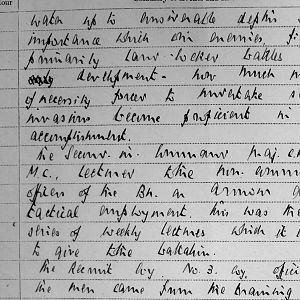 our
water up to considerable depths
importance which our enemies,
primarily land-locked battles
development - how much
of necessity forced to undertake
invasions become proficient in
accomplishment.
The Second-in-Command Maj.
M.C., lectured to the non. comm
officers of the Bn. on
tactical employment. This was the
series of weekly lectures which it
to give to the Battalion.
The Recruit Coy. No. 3. Coy.
the men came from the training